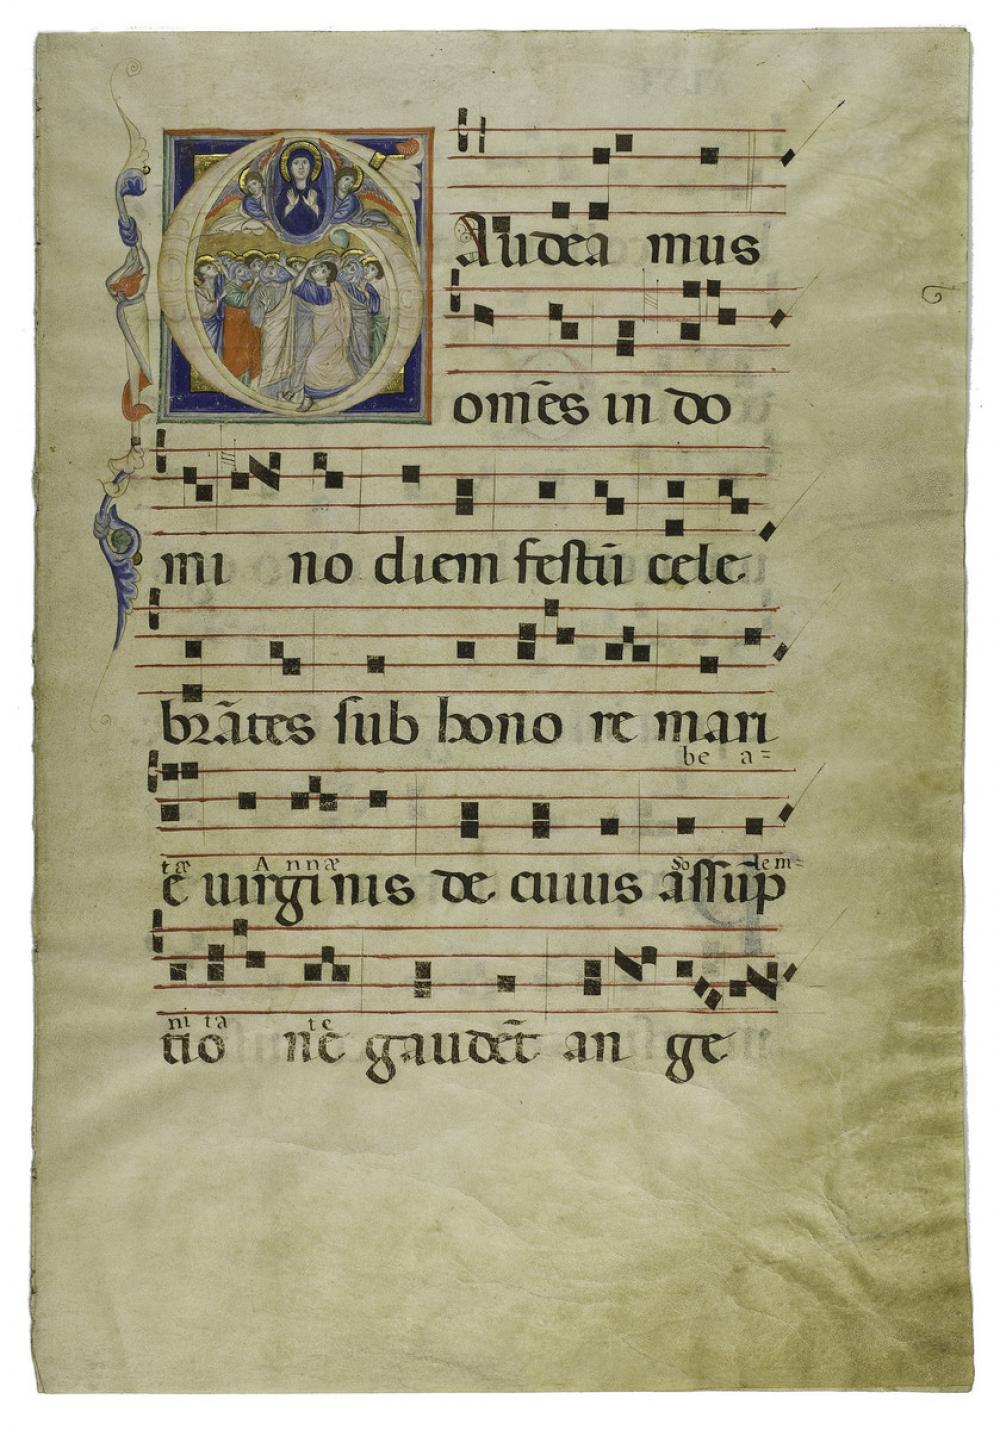 GAudea mus
om̄es in do
mi no diem festū cele
brātes sub hono re mari
be a=
tæ Annæ So lem=
e uirginis de cuius assūp
ni ta te
tio ne gaudēt an ge